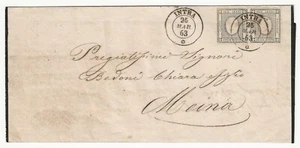 INTRA
25
MAR
63
INTRA
25
MAR
63
Pregiatissimi Signori
Bedoni Chiara
Meina